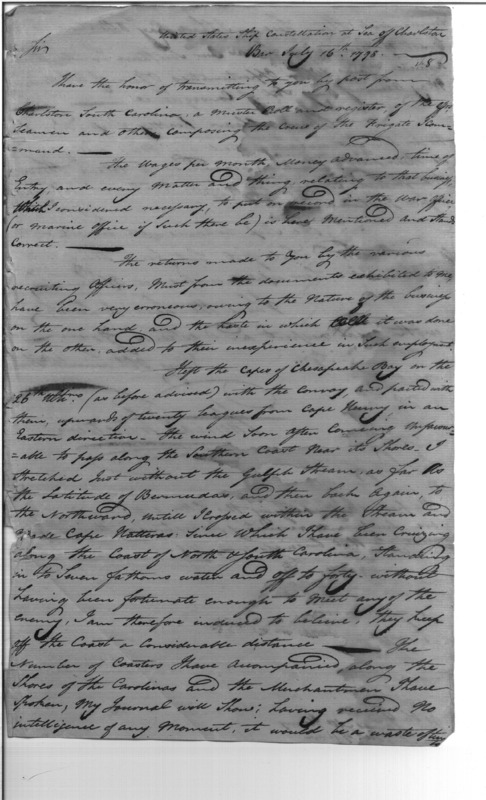 United States Ship Constellation at Sea off Charleston
Sir
Bar July 16th 1798.
I have the honor of transmitting to you by post from
Charleston South Carolina, a Muster Roll and register, of the Offs
Seamen and others composing the Crew of the Frigate I com=
=mand.
The Wages per month, Money advanced, time of
Entry, and every Matter and thing, relating to that being,
Which I considered necessary, to put on record in the War office
(or marine office if Such there be) is here Mentioned and Stands
Correct.
The returns made to You by the various
recruiting Officers, Must from the documents exhibited to me,
have been very erroneous, owing to the Nature of the business
on the one hand, and the haste in which it was done
on the other, added to their inexperience in Such employment.
I left the Capes of Chesepeake Bay on the
26th (as before advised) with the Convoy, and parted with
them, upwards of twenty leagues from Cape Henry, in an
Eastern direction. The wind Soon after Coming unfavour=
=able to pass along the Southern Coast Near its Shores. I
Stretched Just without the Gulph Stream, as far as
the Latitude of Bermudas, and then back Again, to
the Northward, untill I crossed within the Stream and
made Cape Hatteras. Since Which I have been Cruizing
along the Coast of North & South Carolina, Standing
in to Seven fathoms water and off to forty without
having been fortunate enough to Meet any of the
enemy, I am therefore induced to believe, they keep
off the Coast a Considerable distance. The
Number of Coasters I have Accompanied, along the
Shores of the Carolinas and the Merchantmen I have
Spoken, My Journal will Shew; having received No
intelligence of any Moment, it would be a waste of